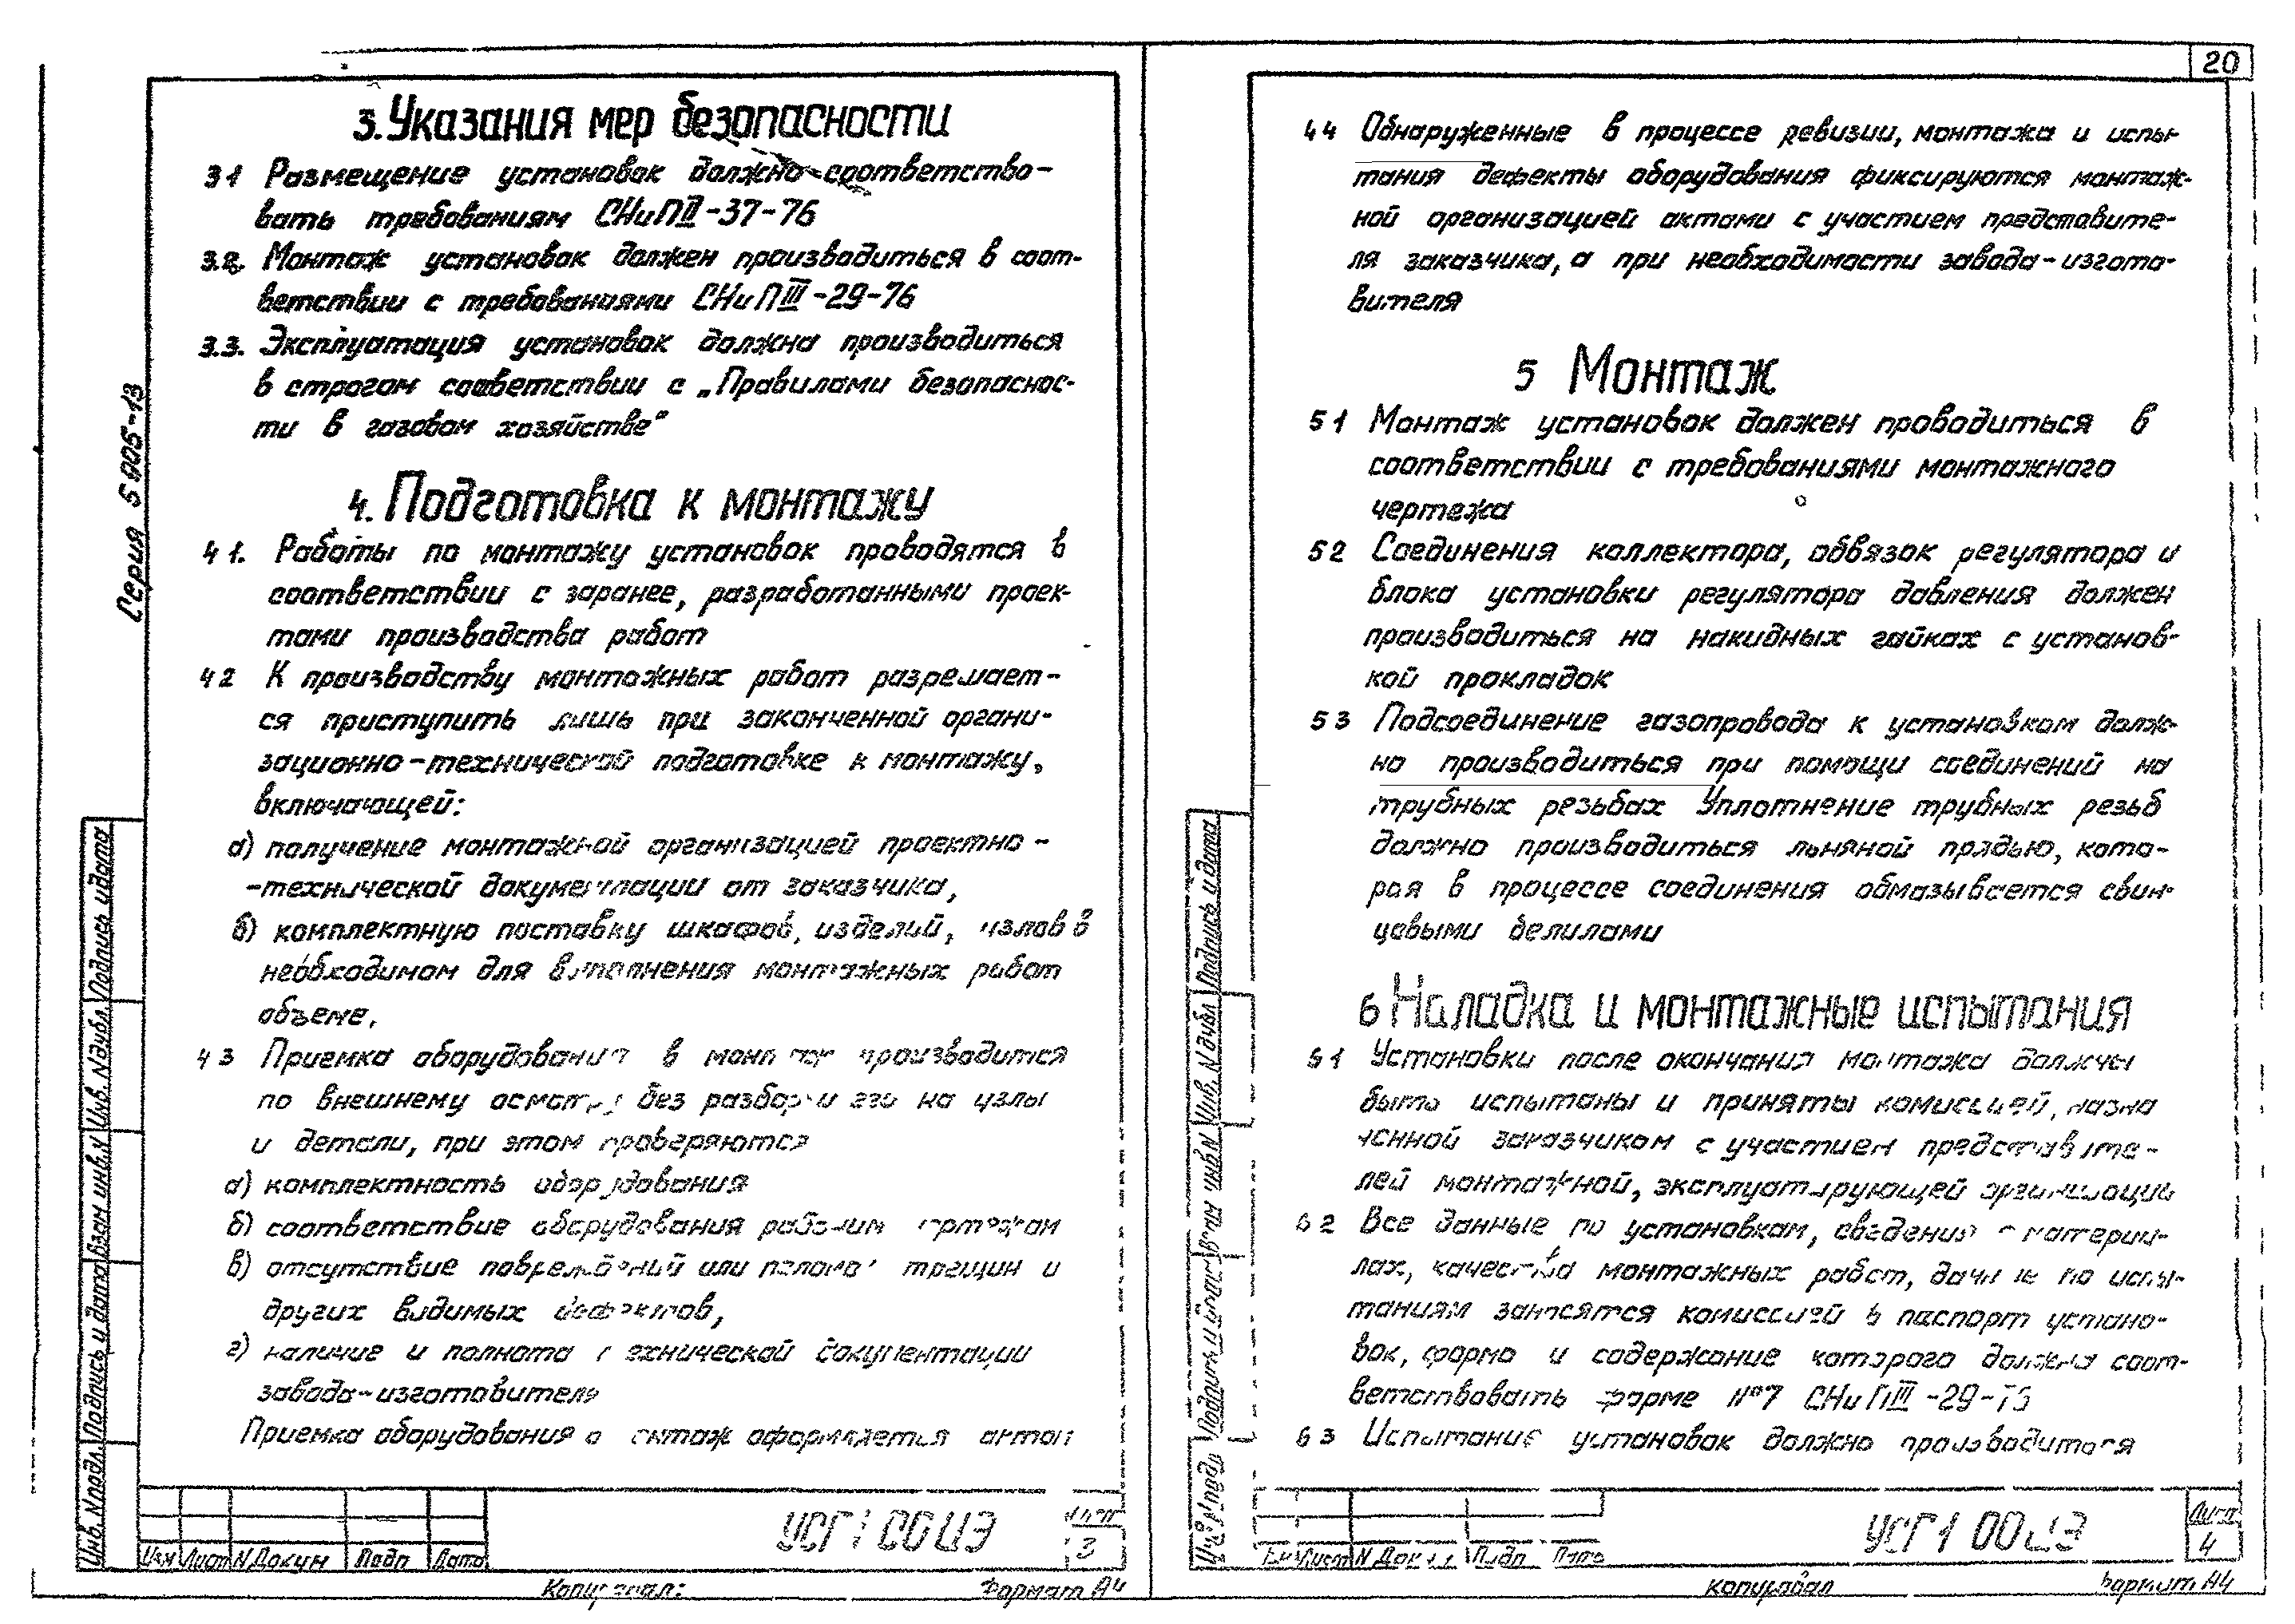 20
Серия 5 905-13
3. Указания мер безопасности
3 1 Размещение установок должно соответство-
вать требованиям СНиП II -37-76
3.2. Монтаж установок должен производиться в соот-
ветствии с требованиями СНиП III -29-76
3.3. Эксплуатация установок должна производиться
в строгом соответствии с „Правилами безопаснос-
ти в газовом хозяйстве"
4. Подготовка к монтажу
4 1. Работы по монтажу установок проводятся в
соответствии с заранее, разработанными проек-
тами производства работ
4 2 К производству монтажных работ разрешает-
ся приступить лишь при законченной органи-
зационно-технической подготовке к монтажу,
включающей:
а) получение монтажной организацией проектно-
-технической документации от заказчика,
б) комплектную поставку шкафов, изделий, узлов в
необходимом для выполнения монтажных работ
объеме,
4 3 Приемка оборудования в монтаж производится
по внешнему осмотру без разборки его на узлы
и детали, при этом проверяются
а) комплектность оборудования
б) соответствие оборудования рабочим чертежам
в) отсутствие повреждений или поломок, трещин и
других видимых дефектов,
г) наличие и полнота технической документации
завода-изготовителя
Приемка оборудования в монтаж оформляется актом
Инв. N подл. Подпись и дата Взам инв. N Инв. N дубл. Подпись и дата
Изм Лист N Докум Подп Дата
УСГ 1 00 ИЭ
Лист
3
Копировал:
Формат А4
4 4 Обнаруженные в процессе ревизии, монтажа и испы-
тания дефекты оборудования фиксируются монтаж-
ной организацией актами с участием представите-
ля заказчика, а при необходимости завода-изгото-
вителя
5 Монтаж
5 1 Монтаж установок должен проводиться в
соответствии с требованиями монтажного
чертежа
5 2 Соединения коллектора, обвязок регулятора и
блока установки регулятора давления должен
производиться на накидных гайках с установ-
кой прокладок
5 3 Подсоединение газопровода к установкам долж-
но производиться при помощи соединений на
трубных резьбах Уплотнение трубных резьб
должно производиться льняной прядью, кото-
рая в процессе соединения обмазывается свин-
цовыми белилами
6 Наладка и монтажные испытания
6 1 Установки после окончания монтажа должны
быть испытаны и приняты комиссией, назна
ченной заказчиком с участием представите-
лей монтажной, эксплуатирующей организации
6 2 Все данные по установкам, сведения о материа-
лах, качества монтажных работ, данные по испы-
таниям заносятся комиссией в паспорт устано-
вок, форма и содержание которого должна соот-
ветствовать форме №7 СНиП III -29-76
6 3 Испытание установок должно производится
Инв. N подл Подпись и дата Взам инв N Инв. N дубл Подпись и дата
Изм Лист N Докум Подп Дата
УСГ 1 00 ИЭ
Лист
4
Копировал
Формат А4